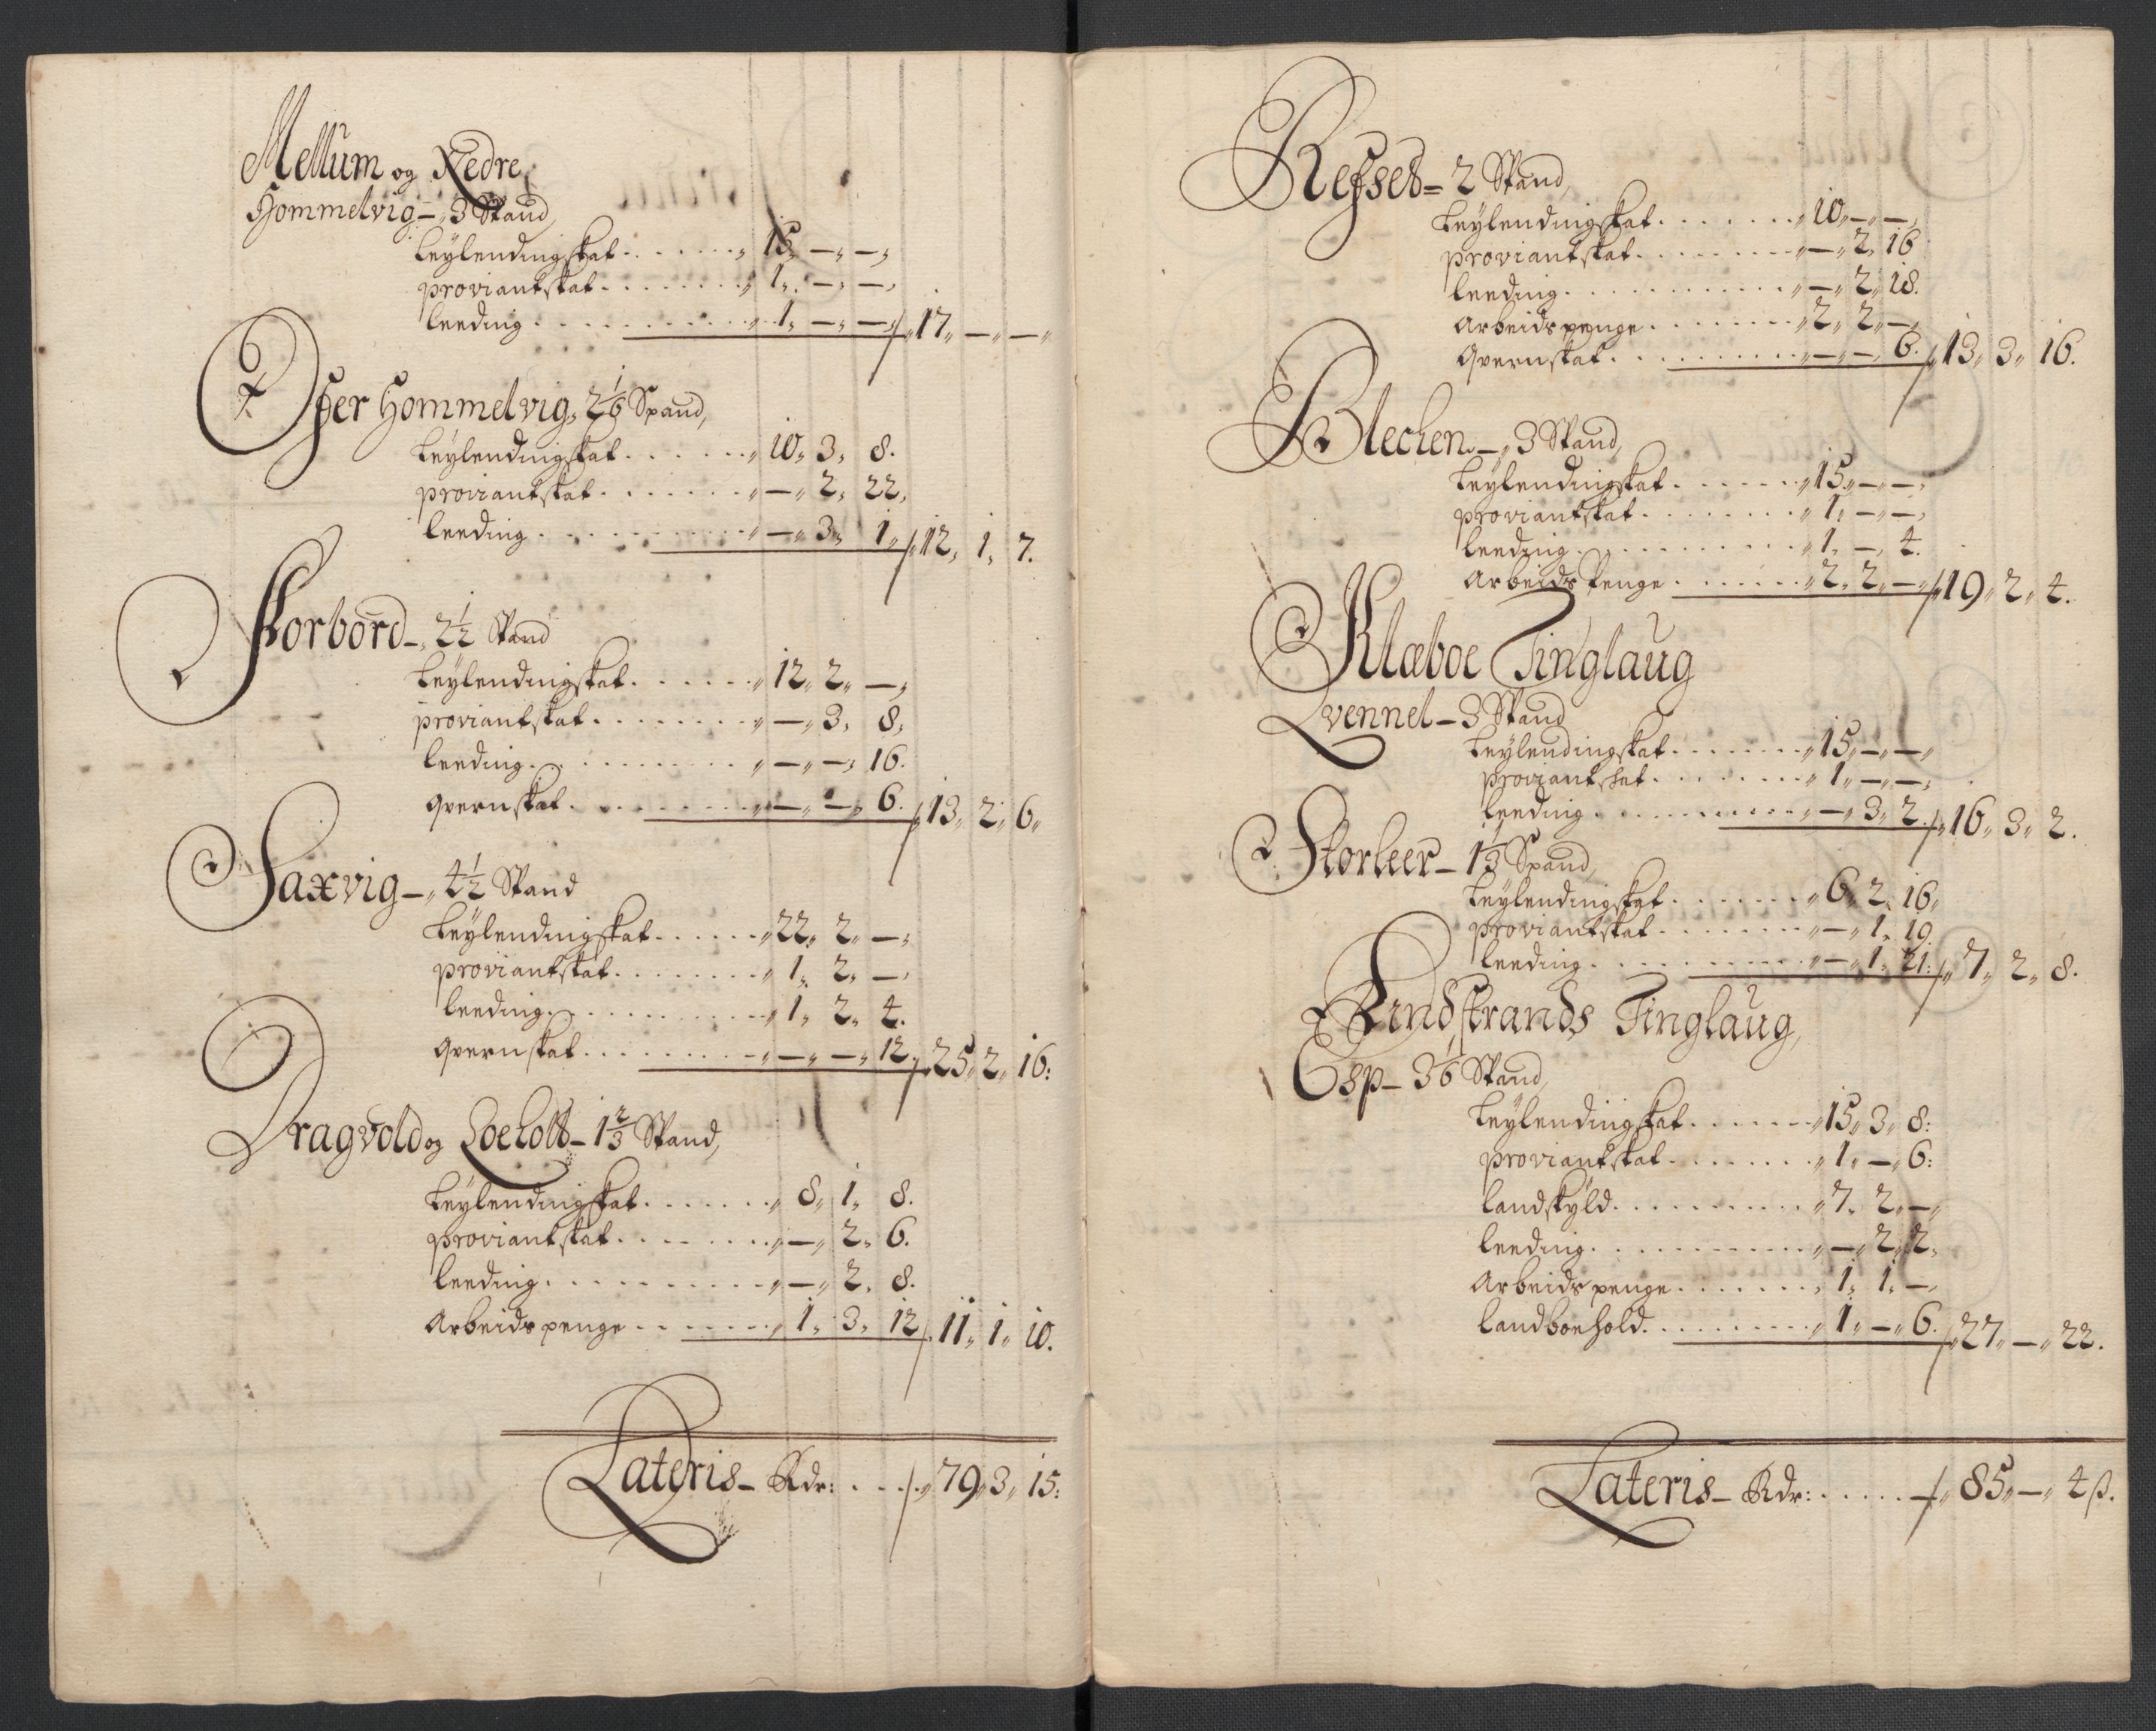 Mellum og Nedre
Hommelvig – „ 3 Spand,
Leylendingskat . . . . . . „ 15 „ – „ – „
proviantskat . . . . . . . „ 1 „ – „ – „
leeding . . . . . . . . . . „ 1 „ – „ – „ / „ 17 „ – „ – „
Øfer Hommelvig „ 2 1/6 Spand,
Leylendingskat . . . . . . „ 10 „ 3 „ 8.
proviantskat . . . . . . . „ – „ 2 „ 22,
leeding . . . . . . . . . . „ – „ 3 „ 1 „ / „ 12 „ 1 „ 7.
Storbord – „ 2 1/2 Spand
Leylendingskat . . . . . . „ 12 „ 2 „ – „
proviantskat . . . . . . . . „ – „ 3 „ 8,
leeding . . . . . . . . . . „ – „ – „ 16.
qvernskat . . . . . . . . . „ – „ – „ 6. / „ 13 „ 2 „ 6 „
Saxvig – „ 4 1/2 Spand
Leylendingskat . . . . . . „ 22 „ 2 „ – „
proviantskat . . . . . . . . „ 1 „ 2 „ – „
leeding . . . . . . . . . . . „ 1 „ 2 „ 4.
qvernskat . . . . . . . . . „ – „ – „ 12 „ / „ 25 „ 2 „ 16:
Dragvold og Loeholt – 1 2/3 Spand,
Leylendingskat . . . . . . . „ 8 „ 1 „ 8.
proviantskat . . . . . . . . „ – „ 2 „ 6.
leeding . . . . . . . . . . . „ – „ 2 „ 8.
Arbeidspenge . . . . . . . „ 1 „ 3 „ 12 / „ 11 „ 1 „ 10.
Lateris – Rdr: . . . / „ 79 „ 3 „ 15:
Refset – 2 Spand,
Leylendingskat . . . . . . . „ 10 „ – „ – „
proviantskat . . . . . . . . „ – „ 2 „ 16
leeding . . . . . . . . . . . „ – „ 2 „ 18.
Arbeidspenge . . . . . . . „ 2 „ 2 „ – „
qvernskat . . . . . . . . . „ – „ – „ 6. / „ 13 „ 3 „ 16.
Blechen – „ 3 Spand,
Leylendingskat . . . . . . „ 15 „ – „ – „
proviantskat . . . . . . . . „ 1 „ – „ – „
leeding . . . . . . . . . . . „ 1 „ – „ 4.
Arbeids Penge . . . . . . „ 2 „ 2 „ – „ / „ 19 „ 2 „ 4.
Klæboe Tinglaug
Qvennel – 3 Spand
Leylendingskat . . . . . . . „ 15 „ – „ – „
proviantskat . . . . . . . „ 1 „ – „ – „
leeding . . . . . . . . . . . „ – „ 3 „ 2 „ / „ 16 „ 3 „ 2.
Storleer – 1 1/3 Spand,
Leylendingskat . . . . . . . „ 6 „ 2 „ 16 „
proviantskat . . . . . . . . „ – „ 1 „ 19.
leeding . . . . . . . . . . . „ – „ 1 „ 21: / „ 7 „ 2 „ 8.
Strindstrands Tinglaug,
Esp – 3 1/6 Spand,
Leylendingskat . . . . . . „ 15 „ 3 „ 8:
proviantskat . . . . . . . . „ 1 „ – „ 6:
landskyld . . . . . . . . . . „ 7 „ 2 „ – „
leeding . . . . . . . . . . . „ – „ 2 „ 2,
Arbeidspenge . . . . . . . „ 1 „ 1 „ –
landboehold . . . . . . . . . „ 1 „ – „ 6. / „ 27 „ – „ 22.
Lateris – Rdr: . . . . . / „ 85 „ – „ 4 ß.